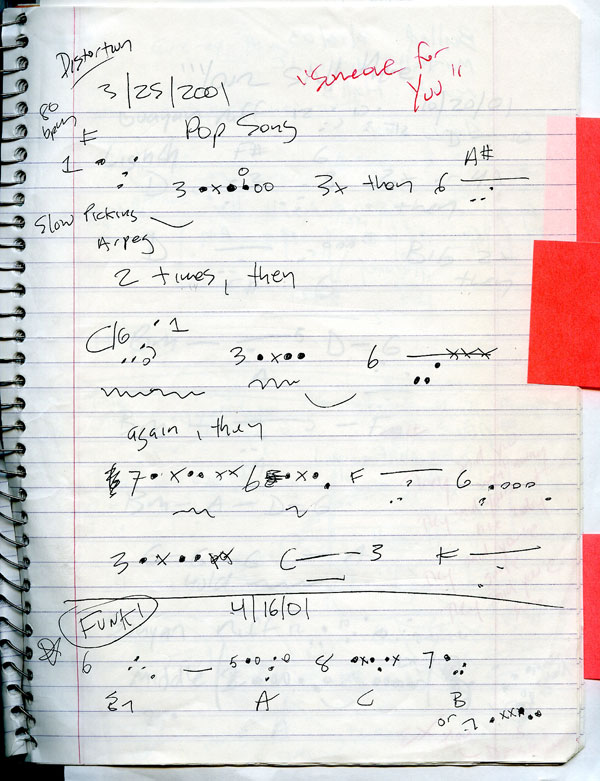 Distortion
3/25/2001
"Someone for
You"
80
bpm
F
Pop Song
1
A#
3 •x•
3x then 6
Slow Picking
Arpeg
2 times, then
C/G 1
3 •x••
6 xxx
again, then
7 •x••xx 6 •x•• F 6
3 •x•• C 3 F
Funk!
4/16/01
6 5 8 7
E7 A C B
or 7 •xxx••